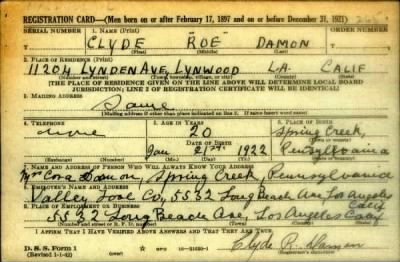 REGISTRATION CARD—(Men born on or after February 17, 1897 and on or before December 31, 1921)
SERIAL NUMBER 1. NAME (Print) ORDER NUMBER
CLYDE ROE DAMON
(First) (Middle) (Last)
2. PLACE OF RESIDENCE (Print)
11204 LYNDEN AVE, LYNWOOD L.A. CALIF
(Number and street) (Town, township, village, or city) (County) (State)
[THE PLACE OF RESIDENCE GIVEN ON THE LINE ABOVE WILL DETERMINE LOCAL BOARD
JURISDICTION; LINE 2 OF REGISTRATION CERTIFICATE WILL BE IDENTICAL]
3. MAILING ADDRESS
Same
[Mailing address if other than place indicated on line 2. If same insert word same]
4. TELEPHONE 5. AGE IN YEARS 6. PLACE OF BIRTH
none 20 Spring Creek,
DATE OF BIRTH (Town or county)
Jan 21st 1922 Pennsylvania
(Exchange) (Number) (Mo.) (Day) (Yr.) (State or country)
7. NAME AND ADDRESS OF PERSON WHO WILL ALWAYS KNOW YOUR ADDRESS
Mrs Cora Damon, Spring Creek, Pennsylvania
8. EMPLOYER'S NAME AND ADDRESS
Valley Tool Co, 5532 Long Beach Ave Los Angeles Calif
9. PLACE OF EMPLOYMENT OR BUSINESS
5532 Long Beach Ave, Los Angeles Calif
(Number and street or R. F. D. number) (Town) (County) (State)
I AFFIRM THAT I HAVE VERIFIED ABOVE ANSWERS AND THAT THEY ARE TRUE.
D. S. S. Form 1
(Revised 1-1-42) (over) Clyde R. Damon